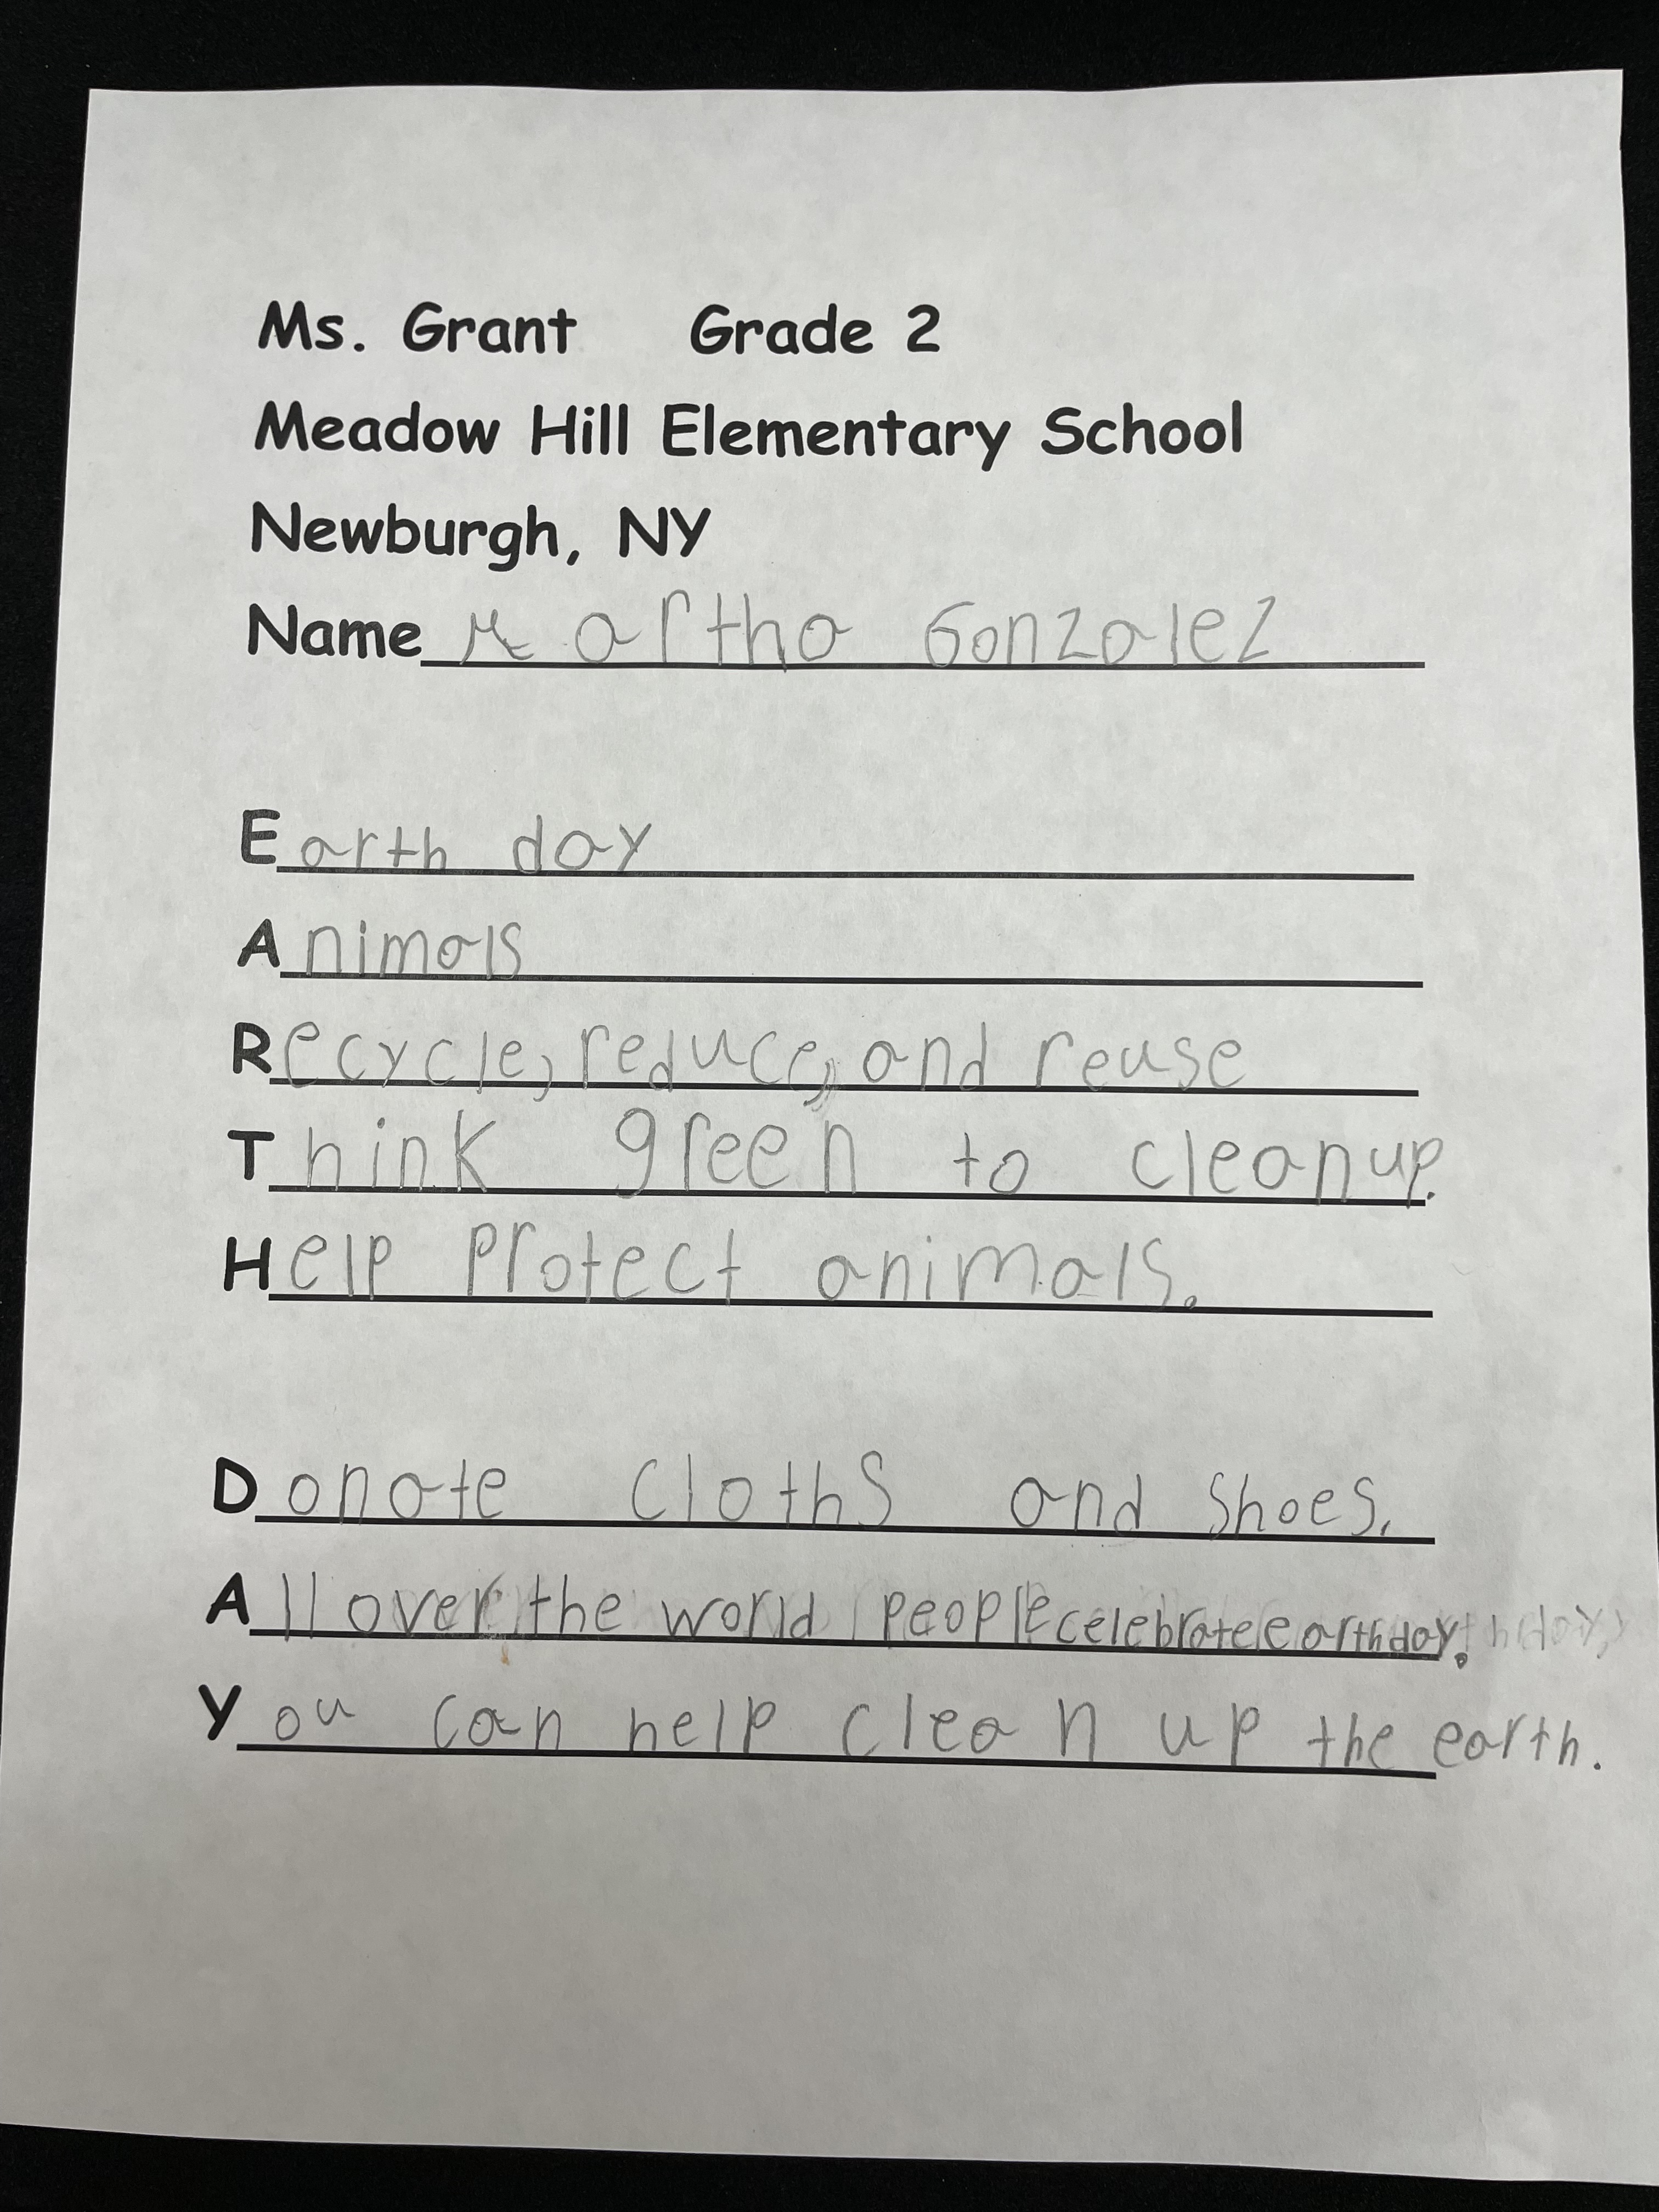 Ms. Grant Grade 2
Meadow Hill Elementary School
Newburgh, NY
Name Martha Gonzalez
Earth day
Animals
Recycle, reduce, and reuse
Think green to cleanup.
Help Protect animals.
Donate Cloths and Shoes.
All over the world people celebrate earthday.
You can help clean up the earth.